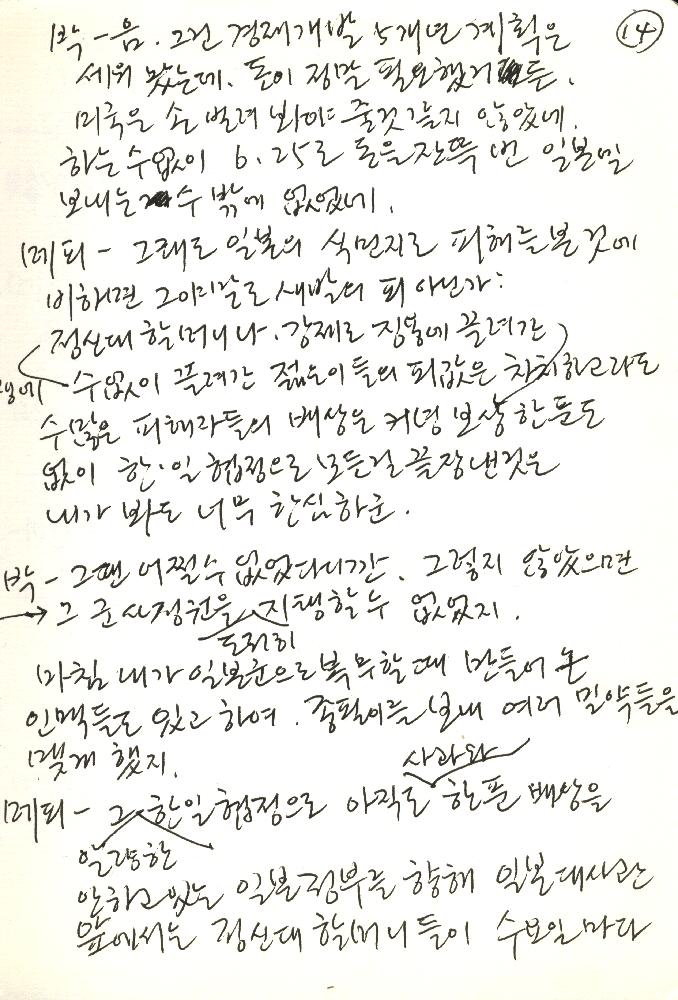 14
박 - 음. 그건 경제개발 5개년 계획은
세워 놨는데. 돈이 정말 필요했거든.
미국은 손 벌려 봐야 줄것같지 않았네.
하는수없이 6.25로 돈을 잔뜩 번 일본밀
보내는 수 밖에 없었네.
메피 - 그래도 일본의 식민지로 피해를 본 것에
비하면 그야말로 새발의 피 아닌가:
정신대 할머니나. 강제로 징용에 끌려간
수없이 끌려간 젊은이들의 피값은 차치하고라도
수많은 피해자들의 배상은 커녕 보상 한푼도
없이 한·일 협정으로 모든걸 끝장낸것은
내가 봐도 너무 한심하군.
박 - 그땐 어쩔수 없었다니깐. 그렇지 않았으면
그 군사정권을 지탱할 수 없었지.
도저히
마침 내가 일본군으로 복무할때 만들어 논
인맥들도 있고 하여. 종필이를 보내 여러 밀약들을
맺게 했지.
사과와
메피 - 그 한일협정으로 아직도 한푼 배상을
알량한
안하고있는 일본정부를 향해 일본대사관
앞에서는 정신대 할머니들이 수요일마다